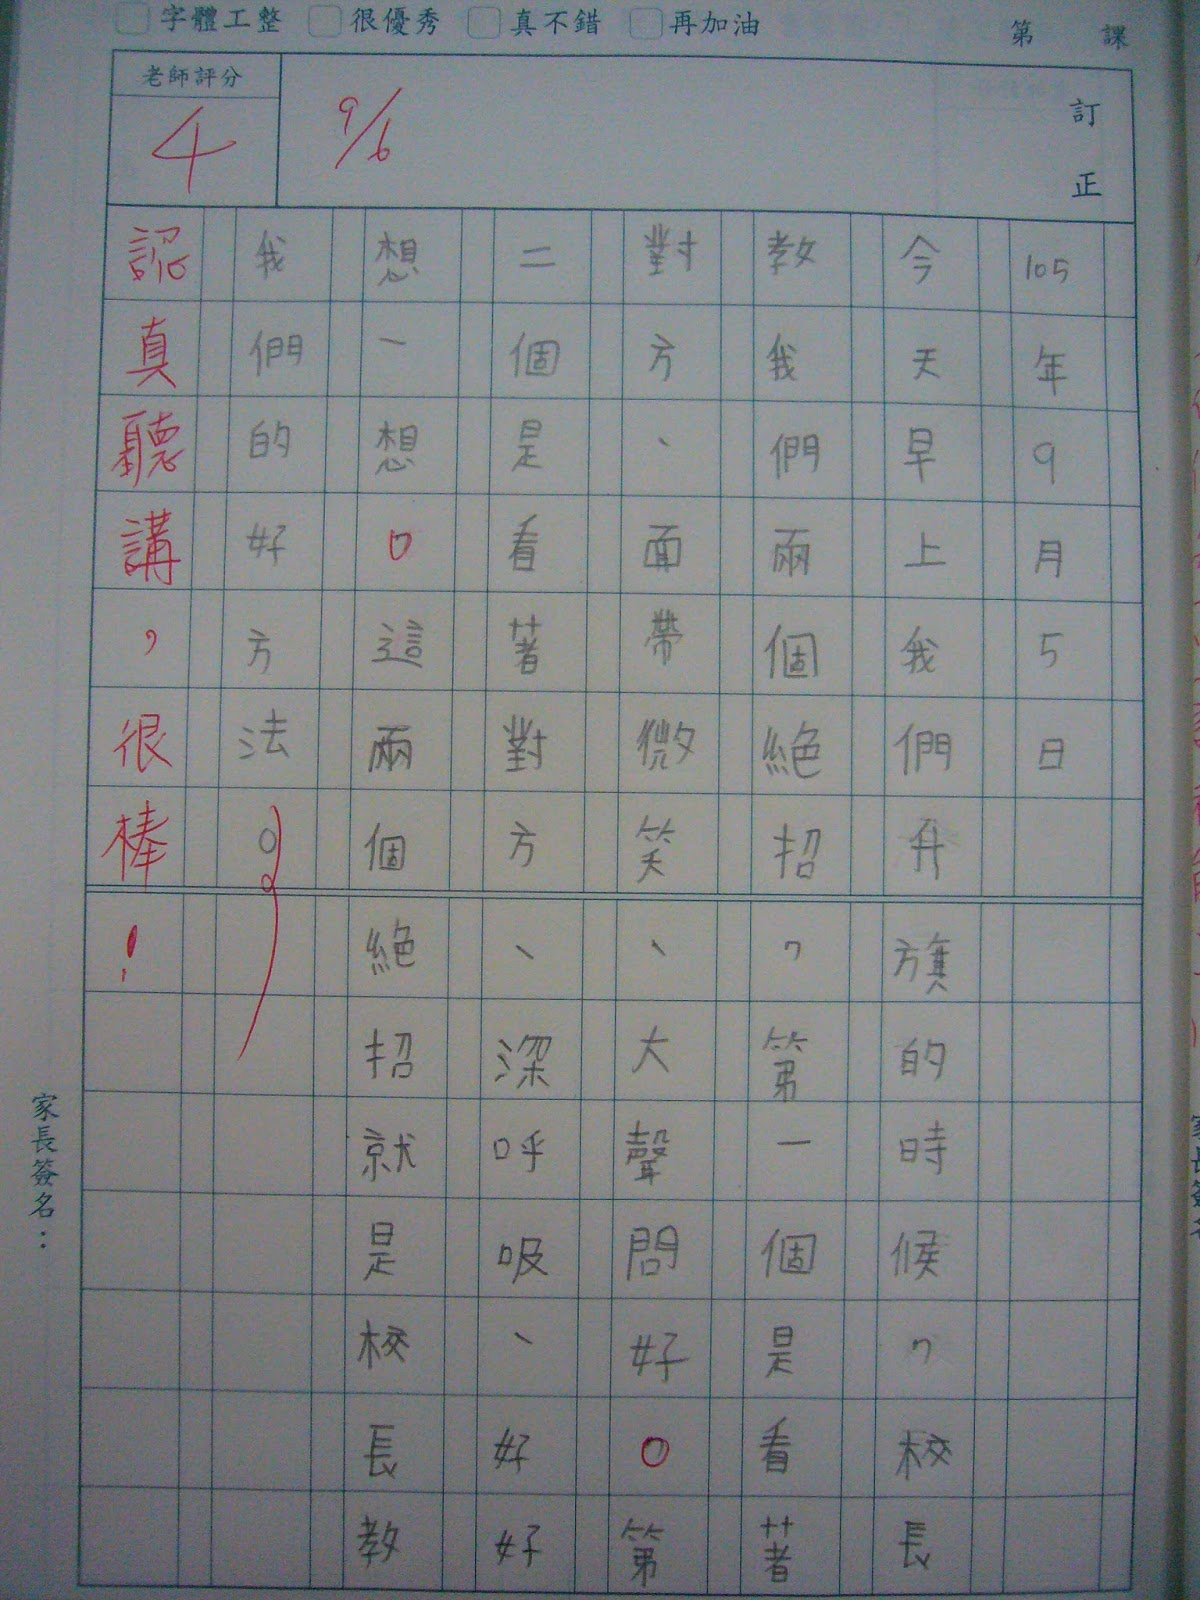 字體工整 很優秀 真不錯 再加油
第 課
老師評分
4
9/6
訂正
105年9月5日
今天早上我們升旗的時候，校長
教我們兩個絕招，第一個是看著
對方、面帶微笑、大聲問好。第
二個是看著對方、深呼吸、好好
想一想。這兩個絕招就是校長教
我們的好方法。
認真聽講，很棒！
家長簽名：